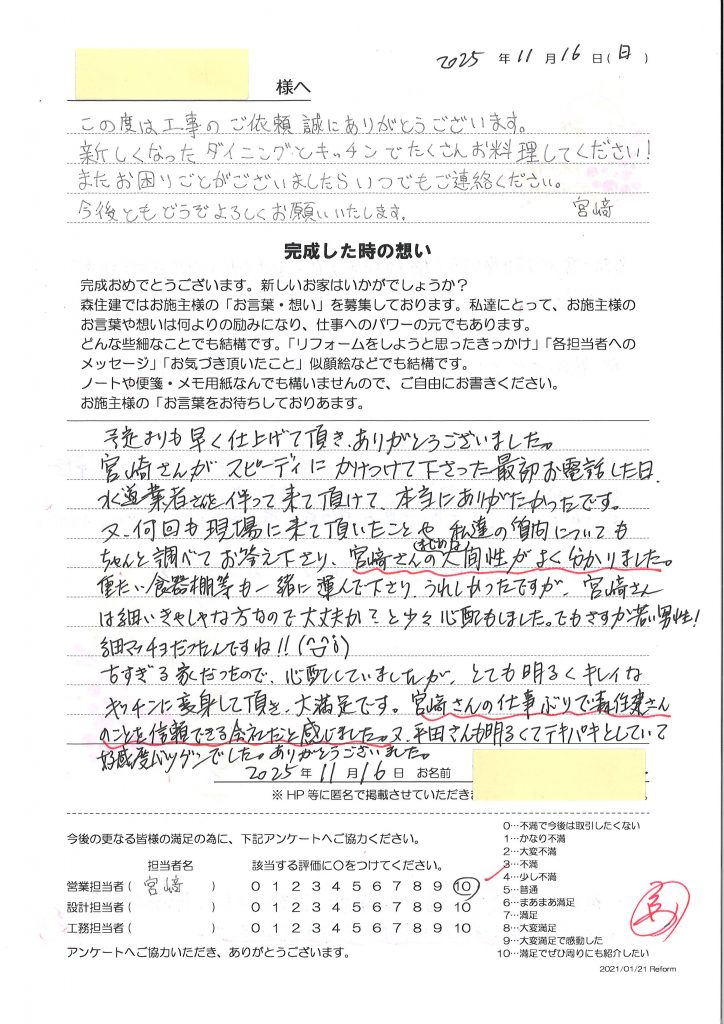 2025 年 11 月 16 日 ( 日 )
様へ
この度は工事のご依頼誠にありがとうございます。
新しくなったダイニングとキッチンでたくさんお料理してください!
またお困りごとがございましたらいつでもご連絡ください。
今後ともどうぞよろしくお願いいたします。 宮﨑
完成した時の想い
完成おめでとうございます。新しいお家はいかがでしょうか?
森住建ではお施主様の「お言葉・想い」を募集しております。私達にとって、お施主様の
お言葉や想いは何よりの励みになり、仕事へのパワーの元でもあります。
どんな些細なことでも結構です。「リフォームをしようと思ったきっかけ」「各担当者への
メッセージ」「お気づき頂いたこと」似顔絵などでも結構です。
ノートや便箋・メモ用紙なんでも構いませんので、ご自由にお書きください。
お施主様の「お言葉をお待ちしておりあます。
予定よりも早く仕上げて頂き、ありがとうございました。
宮崎さんがスピーディにかけつけて下さった最初お電話した日、
水道業者さんを伴って来て頂けて、本当にありがたかったです。
又、何回も現場に来て頂いたことや、私達の質問についても
ちゃんと調べてお答え下さり、宮崎さんのまじめな人間性がよく分かりました。
重たい食器棚等も一緒に運んで下さり、うれしかったですが、宮崎さん
は細いきゃしゃな方なので大丈夫か?と少々心配もしました。でもさすが若い男性!
細マッチョだったんですね!!(^^)
古すぎる家だったので、心配していましたが、とても明るくキレイな
キッチンに変身して頂き、大満足です。宮崎さんの仕事ぶりで森住建さん
のことを信頼できる会社だと感じました。又、平田さんも明るくてテキパキとしていて
好感度バツグンでした。ありがとうございました。
2025 年 11 月 16 日 お名前
※ HP 等に匿名で掲載させていただきま
今後の更なる皆様の満足の為に、下記アンケートへご協力ください。
担当者名 該当する評価に○をつけてください。
営業担当者( 宮﨑 ) 0 1 2 3 4 5 6 7 8 9 10
設計担当者( ) 0 1 2 3 4 5 6 7 8 9 10
工務担当者( ) 0 1 2 3 4 5 6 7 8 9 10
アンケートへご協力いただき、ありがとうございます。
0…不満で今後は取引したくない
1…かなり不満
2…大変不満
3…不満
4…少し不満
5…普通
6…まあまあ満足
7…満足
8…大満足
9…大変満足で感動した
10…満足でぜひ周りにも紹介したい
2021/01/21 Reform